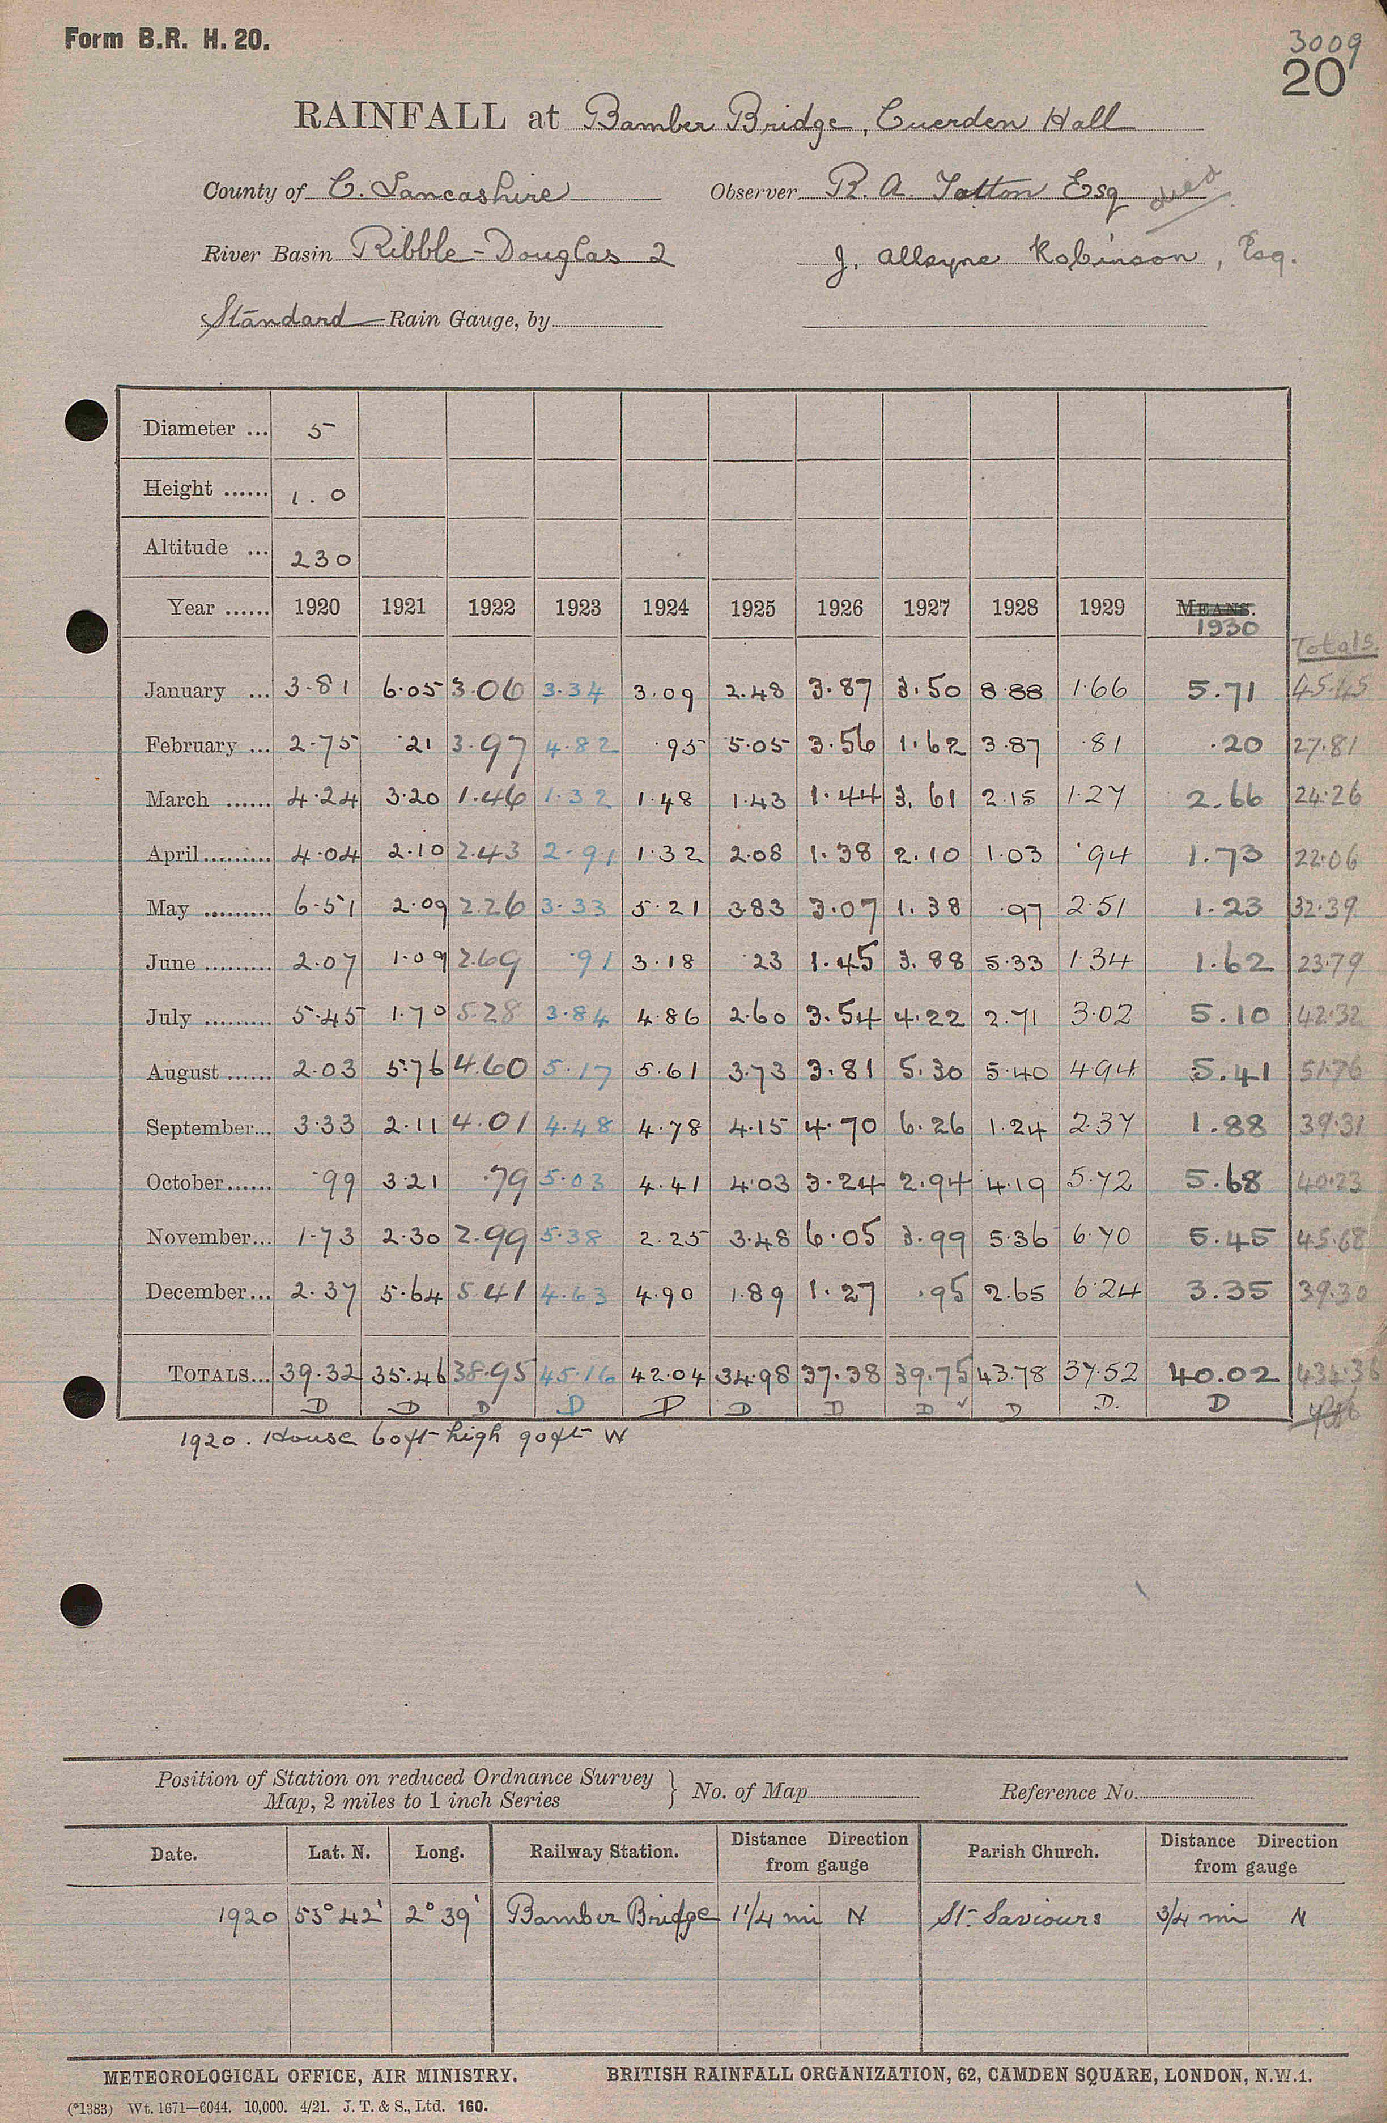 Form B.R. H. 20.
3009
20
RAINFALL at Bamber Bridge, Cuerden Hall
County of C. Lancashire Observer R. A. Tatton Esq died
River Basin Ribble-Douglas 2 J. Alleyne Robinson, Esq.
Standard Rain Gauge, by
Diameter ... 5
Height ...... 1.0
Altitude ... 230
Year ...... 1920 1921 1922 1923 1924 1925 1926 1927 1928 1929 MEANS. 1930 Totals
January ... 3.81 6.05 3.06 3.34 3.09 2.48 3.87 3.50 8.88 1.66 5.71 45.45
February ... 2.75 .21 3.97 4.82 .95 5.05 3.56 1.62 3.87 .81 .20 27.81
March ...... 4.24 3.20 1.46 1.32 1.48 1.43 1.44 3.61 2.15 1.27 2.66 24.26
April ......... 4.04 2.10 2.43 2.91 1.32 2.08 1.38 2.10 1.03 .94 1.73 22.06
May ......... 6.51 2.09 2.26 3.33 5.21 3.83 3.07 1.38 .97 2.51 1.23 32.39
June ......... 2.07 1.09 2.69 .91 3.18 .23 1.45 3.88 5.33 1.34 1.62 23.79
July ......... 5.45 1.70 5.28 3.84 4.86 2.60 3.54 4.22 2.71 3.02 5.10 42.32
August ...... 2.03 5.76 4.60 5.17 5.61 3.73 3.81 5.30 5.40 4.94 5.41 51.76
September... 3.33 2.11 4.01 4.48 4.78 4.15 4.70 6.26 1.24 2.37 1.88 39.31
October...... .99 3.21 .79 5.03 4.41 4.03 3.24 2.94 4.19 5.72 5.68 40.23
November... 1.73 2.30 2.99 5.38 2.25 3.48 6.05 3.99 5.36 6.70 5.45 45.68
December... 2.37 5.64 5.41 4.63 4.90 1.89 1.27 .95 2.65 6.24 3.35 39.30
TOTALS... 39.32 35.46 38.95 45.16 42.04 34.98 37.38 39.75 43.78 37.52 40.02 434.36
D D D D D D D D ✓ D D. D
1920. House 60ft high 90ft W
Position of Station on reduced Ordnance Survey
Map, 2 miles to 1 inch Series } No. of Map Reference No.
Date. Lat. N. Long. Railway Station. Distance Direction from gauge Parish Church. Distance Direction from gauge
1920 53° 42' 2° 39' Bamber Bridge 1 1/4 mi N St. Saviours 3/4 mi N
METEOROLOGICAL OFFICE, AIR MINISTRY. BRITISH RAINFALL ORGANIZATION, 62, CAMDEN SQUARE, LONDON, N.W.1.
(*1383) Wt. 1671—6044. 10,000. 4/21. J. T. & S., Ltd. 160.